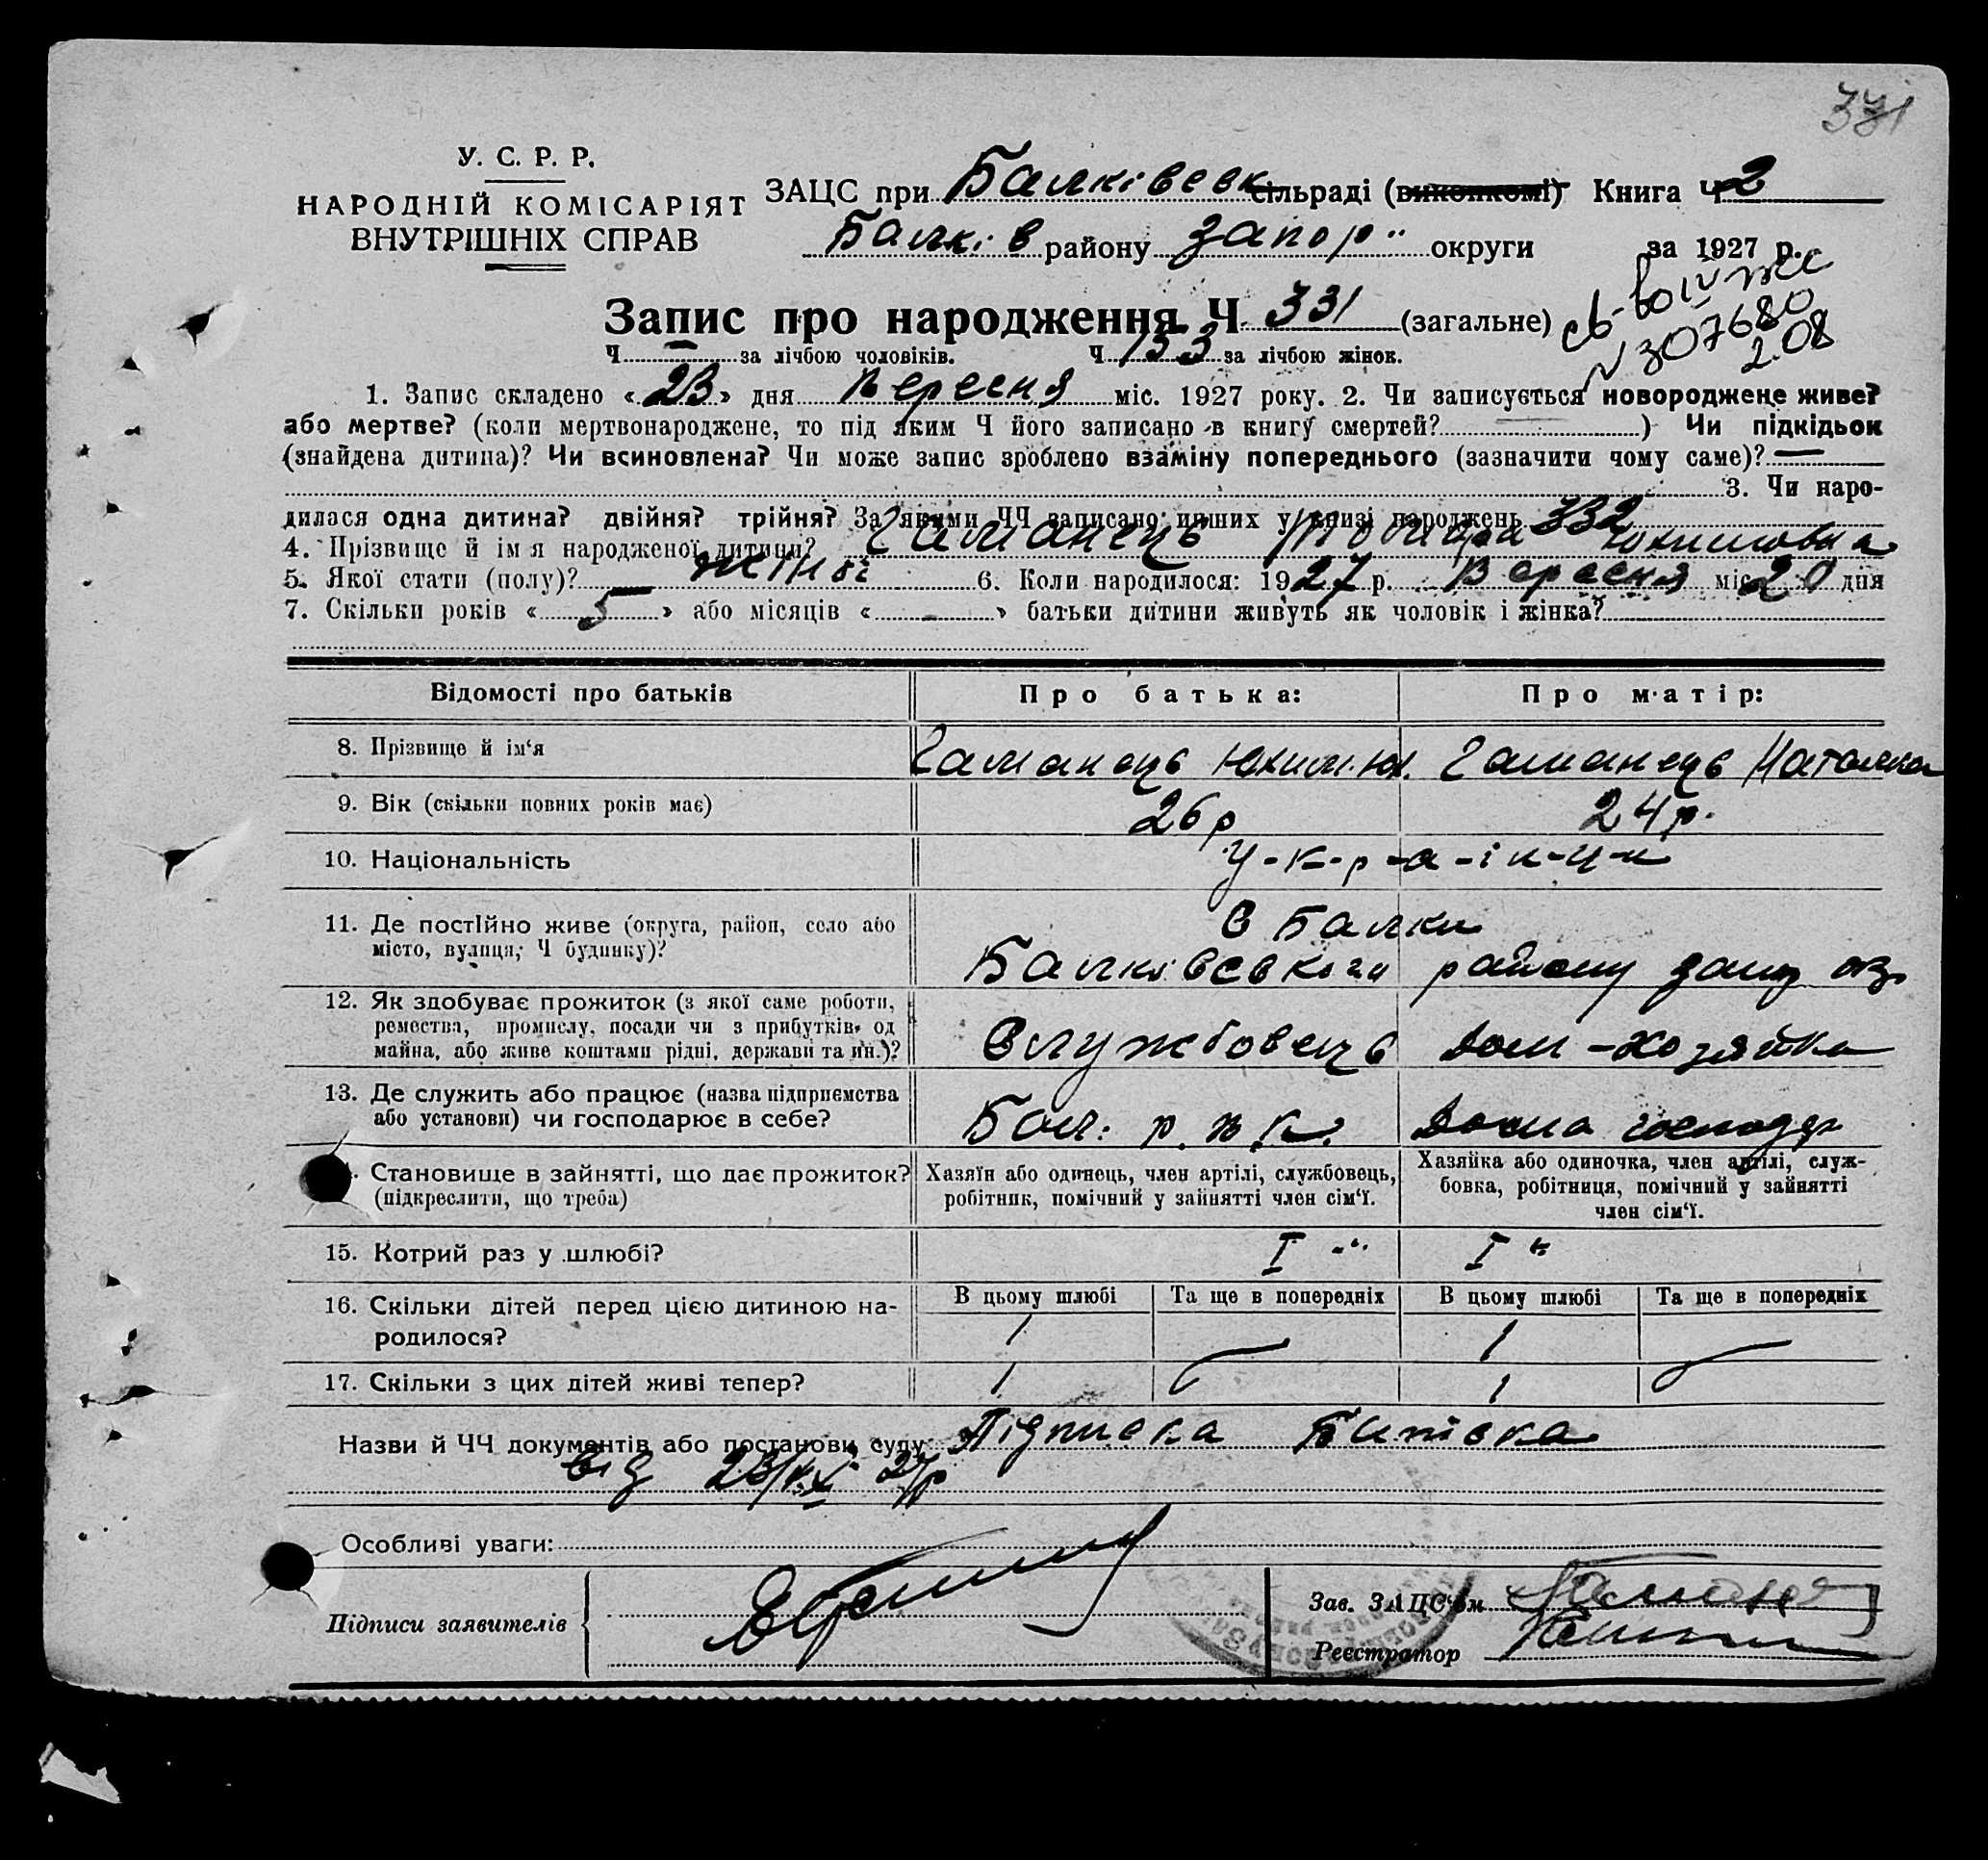 331
У. С. Р. Р.
НАРОДНІЙ КОМІСАРІЯТ
ВНУТРІШНІХ СПРАВ
ЗАЦС при Балківськ сільраді (виконкомі) Книга Ч 2
Балків району Запор округи за 1927 р.
Запис про народження Ч. 331 (загальне)
№ 307680
2.08
Ч. — за лічбою чоловіків. Ч. 153 за лічбою жінок.
1. Запис складено «23» дня Вересня міс. 1927 року. 2. Чи записується новороджене живе?
або мертве? (коли мертвонароджене, то під яким Ч його записано в книгу смертей? ) Чи підкідьок
(знайдена дитина)? Чи всиновлена? Чи може запис зроблено взаміну попереднього (зазначити чому саме)? —
3. Чи наро-
дилася одна дитина? двійня? трійня? За якими ЧЧ записано инших у книзі народжень 332
4. Прізвище й ім'я народженої дитини? Гаманець Юхимовна
5. Якої стати (полу)? жіної 6. Коли народилося: 1927 р. Вересня міс. 20 дня
7. Скільки років « 5 » або місяців « — » батьки дитини живуть як чоловік і жінка?
Відомості про батьків Про батька: Про матір:
8. Прізвище й ім'я Гаманець Юхим Юх. Гаманець Наталка
9. Вік (скільки повних років має) 26 р 24 р.
10. Національність У-к-р-а-ї н-ц-и
11. Де постійно живе (округа, район, село або
місто, вулиця, Ч будинку)?
с Балки
Балківського району Запор окр
12. Як здобуває прожиток (з якої саме роботи,
ремества, промислу, посади чи з прибутків од
майна, або живе коштами рідні, держави та ин.)?
Службовець Дом-хозяйка
13. Де служить або працює (назва підприємства
або установи) чи господарює в себе?
Бал. р. в. к. Дома господар
Становище в зайнятті, що дає прожиток?
(підкреслити, що треба)
Хазяїн або одинець, член артілі, службовець,
робітник, помічний у зайнятті член сім'ї.
Хазяйка або одиночка, член артілі, служ-
бовка, робітниця, помічний у зайнятті
член сім'ї.
15. Котрий раз у шлюбі? I I
16. Скільки дітей перед цією дитиною на-
родилося?
В цьому шлюбі Та ще в попередніх В цьому шлюбі Та ще в попередніх
1 — 1 —
17. Скільки з цих дітей живі тепер? 1 — 1 —
Назви й ЧЧ документів або постанови суду: Підписка Батька
від 23/IX 27р
Особливі уваги:
Підписи заявителів
Зав. ЗАЦС'ом
Реєстратор